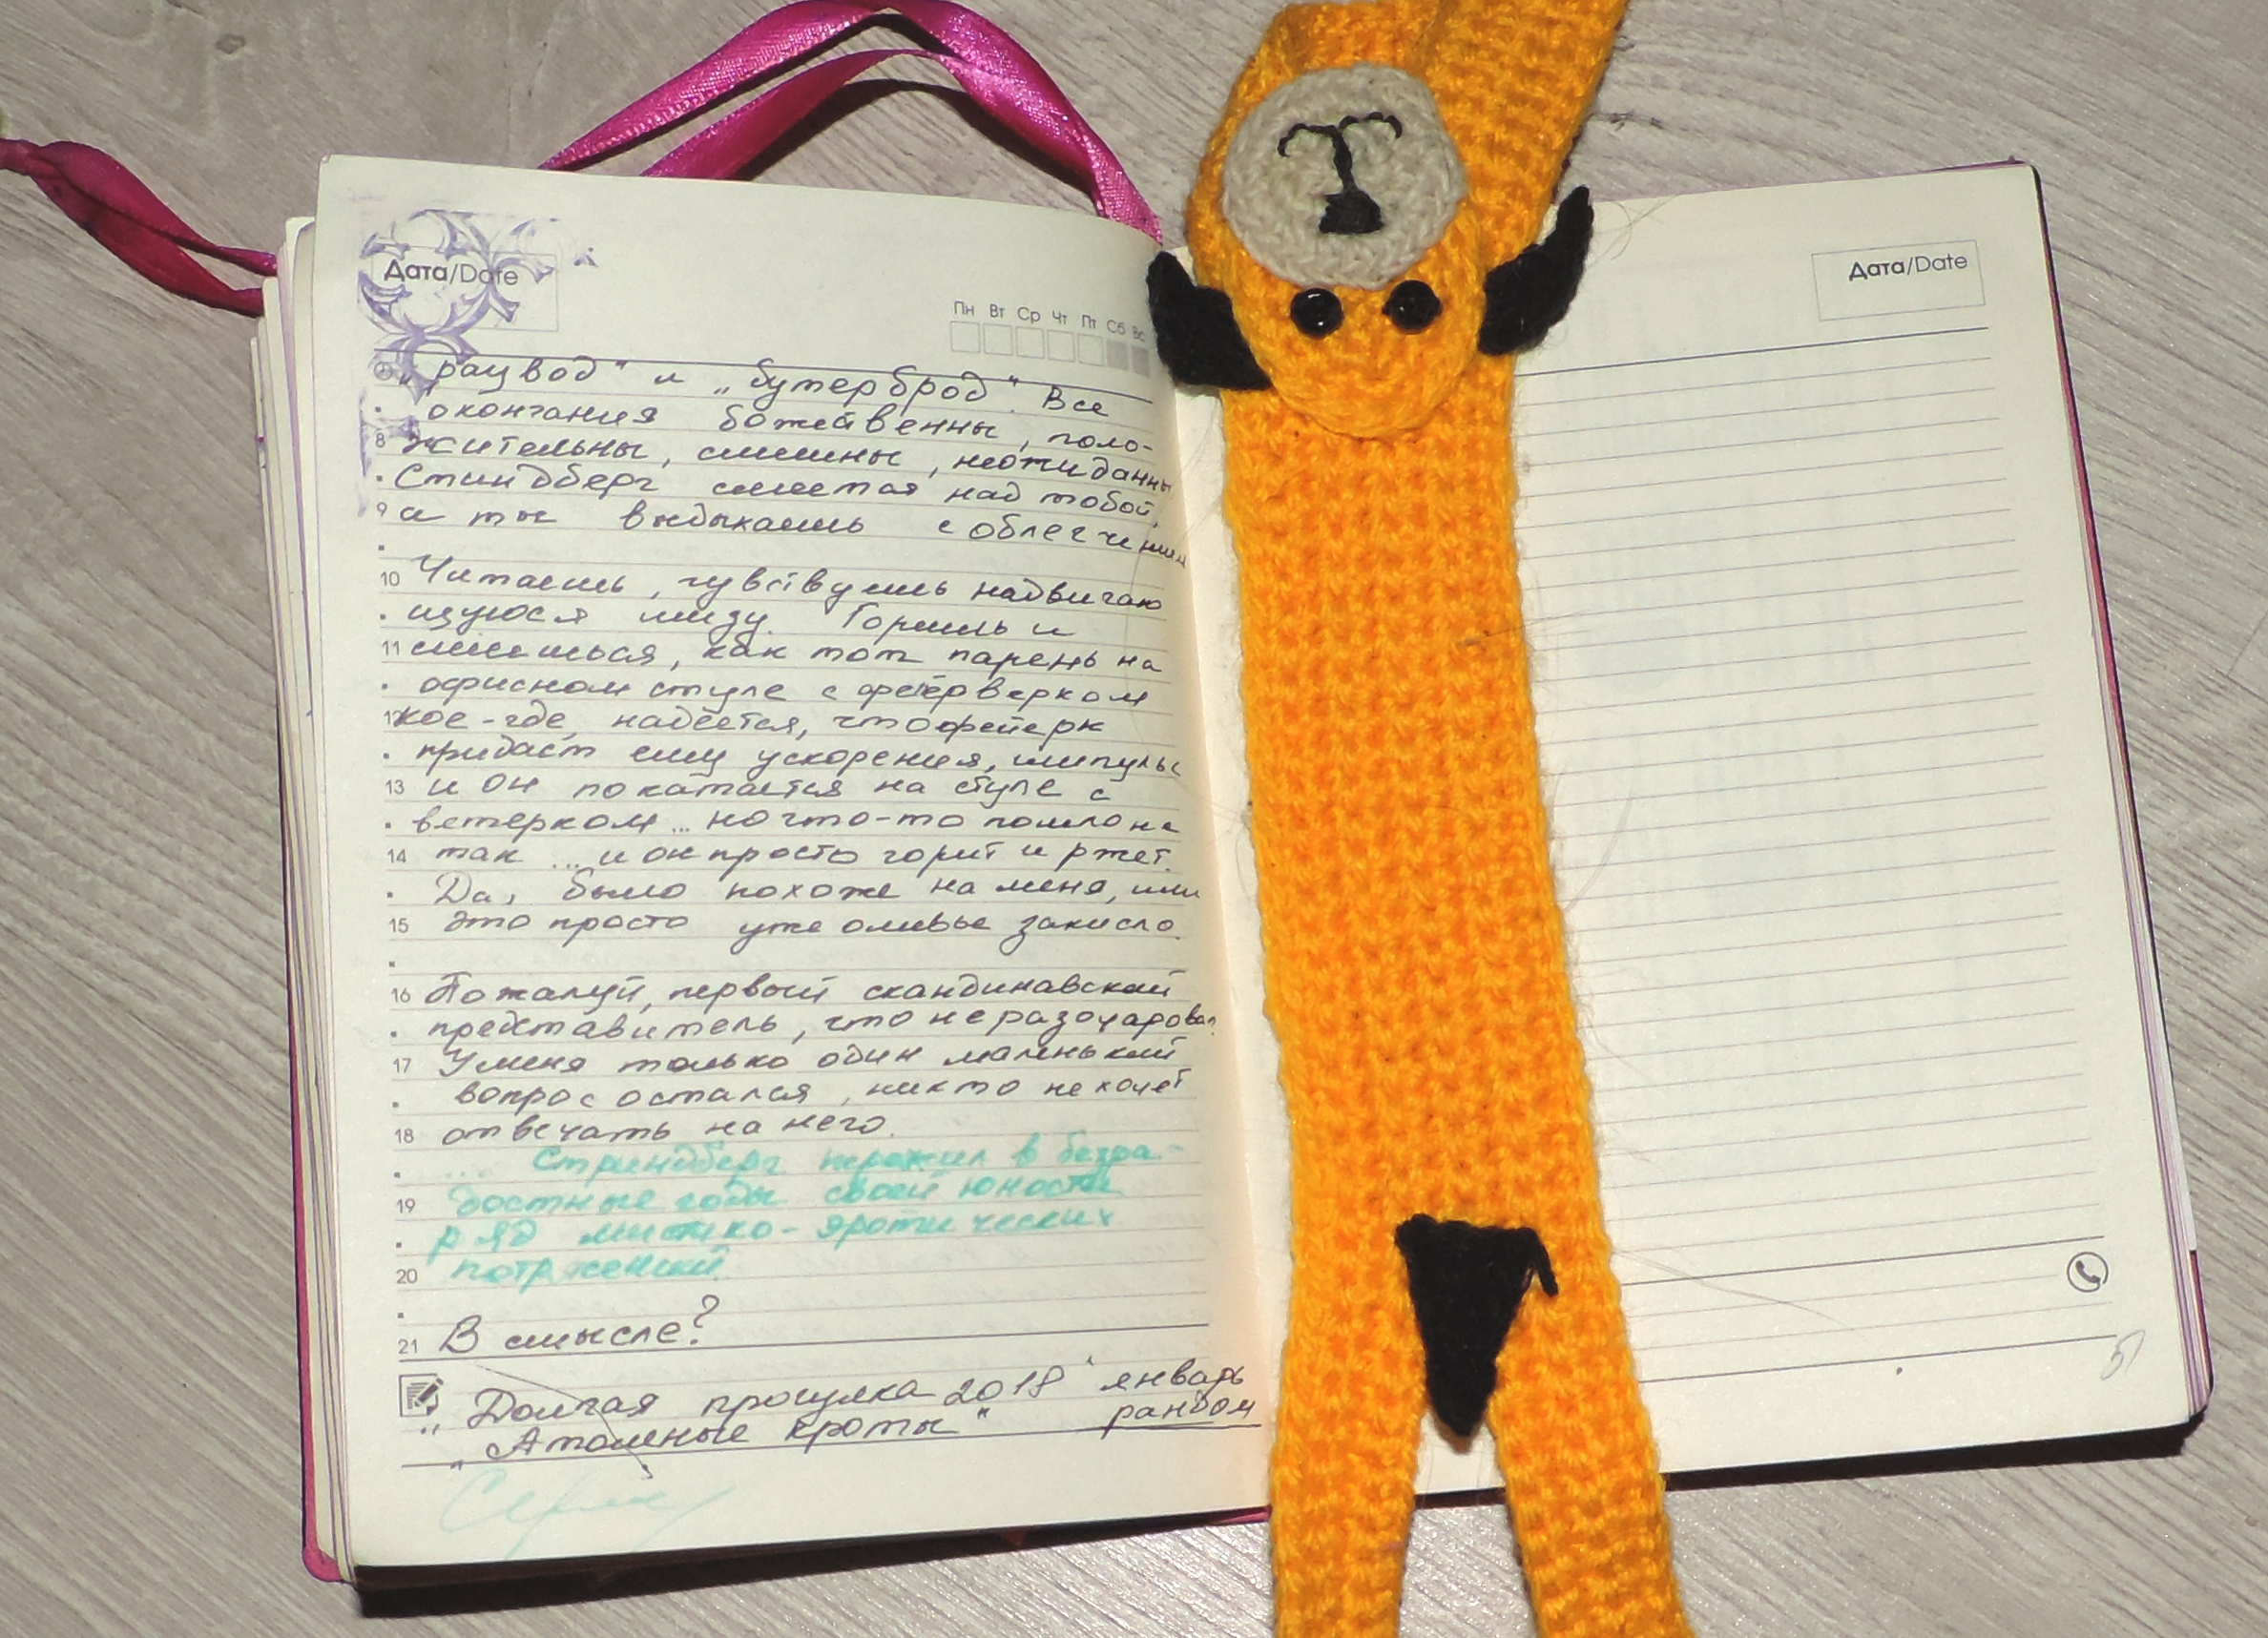 Дата/Date
Пн Вт Ср Чт Пт Сб Вс
"рацвод" и "бутерброд". Все
окончания божественны, поло-
8 жительны, смешны, неожиданны
Стиндберг смеется над тобой,
9 а ты выдыхаешь с облегчением
10 Читаешь, чувствуешь надвигаю
щуюся шизу. Горишь и
11 смеешься, как тот парень на
офисном стуле с фейерверком
12 кое-где, надеется, что фейерк
придаст ему ускорения, импульс
13 и он покатается на стуле с
ветерком... но что-то пошло не
14 так ... и он просто горит и ржет.
Да, было похоже на меня, или
15 это просто уже оливье закисло.
16 Пожалуй, первый скандинавский
представитель, что не разочаровал.
17 У меня только один маленький
вопрос остался, никто не хочет
18 отвечать на него.
... Стриндберг пережил в безра-
19 достные годы своей юности
ряд мистико-эротических
20 потрясений.
21 В смысле?
"Долгая прогулка 2018" январь
"Атомные кроты" рандом
Дата/Date
51